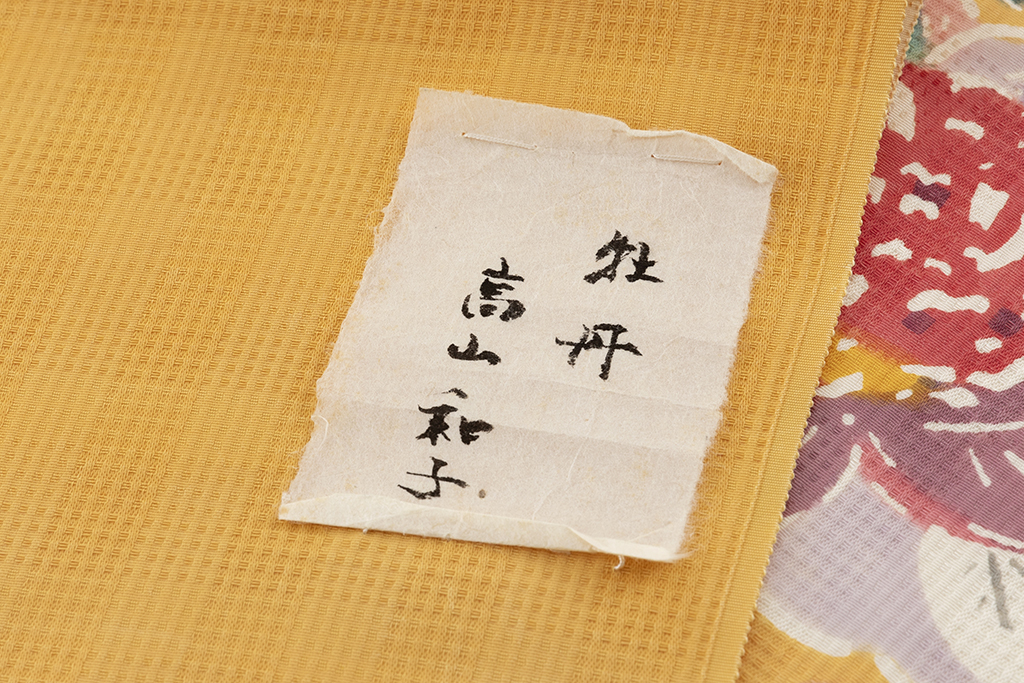 牡丹
高山和子